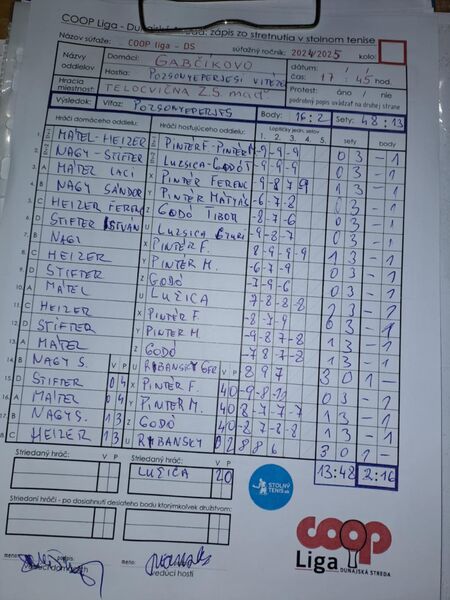 COOP Liga - Dunajská Streda, zápis zo stretnutia v stolnom tenise
Názov súťaže: COOP liga - DS súťažný ročník: 2024/2025 kolo:
Názvy oddielov Domáci: GABČIKOVO dátum: / /
Hostia: POZSONYEPERJESI VITÉZ čas: 17 : 45 hod.
Hracia miestnosť: TELOCVIČNA ZŠ. maď Protest: áno / nie
podrobný popis uvádzať na druhej strane
Výsledok: Víťaz: POZSONYEPERJES Body: 16:2 Sety: 48:13
Hráči domáceho oddielu: Hráči hosťujúceho oddielu: Lopticky jedn. setov sety body
1. 2. 3. 4. 5.
1. MÁTEL-HEIZER PINTÉR F-PINTÉR -9 -9 -9 0 3 - 1
2. NAGY-STIFTER LUZSICA-GODÓ 0 3 - 1
3. A MÁTEL LACI X PINTÉR FERENC -9 -8 7 1 3 - 1
4. B NAGY SÁNDOR Y PINTÉR MÁTYÁS -6 -7 -8 0 3 - 1
5. C HEIZER FERENC Z GODÓ TIBOR -8 -7 -6 0 3 - 1
6. D STIFTER ISTVÁN U LUZSICA GYURI -9 -8 -7 0 3 - 1
7. B NAGY X PINTÉR F. 8 -9 -9 -9 1 3 - 1
8. C HEIZER Y PINTÉR M. -6 -7 -9 0 3 - 1
9. D STIFTER Z GODÓ 0 3 - 1
10. A MÁTEL U LUZSICA 7 -8 -8 -8 1 3 - 1
11. C HEIZER X PINTÉR F. -8 -7 -9 3 - 1
12. D STIFTER Y PINTÉR M. -9 -8 7 -8 1 3 - 1
13. A MÁTEL Z GODÓ -7 8 -7 -8 1 3 - 1
14. B NAGY S. V P U RABANSKY V P 8 9 7 3 0 1 -
15. D STIFTER 0 4 X PINTÉR F. 4 0 -9 -8 -11 0 3 - 1
16. A MÁTEL 0 4 Y PINTÉR M. 4 0 8 -7 -7 -7 1 3 - 1
17. B NAGY S. 1 3 Z GODÓ 4 0 8 -7 -8 -8 1 3 - 1
18. C HEIZER 1 3 U RABANSKY 0 2 8 8 6 3 0 1 -
13:48 2:16
Striedaný hráč: V P Striedaný hráč: V P
LUZSICA 2 0
Striedaní hráči - po dosiahnutí desiateho bodu ktorýmkoľvek družstvom:
STOLNÝ
TENIS.sk
meno: podpis:
vedúci domácich
meno:
vedúci hostí
coop
Liga
DUNAJSKÁ STREDA